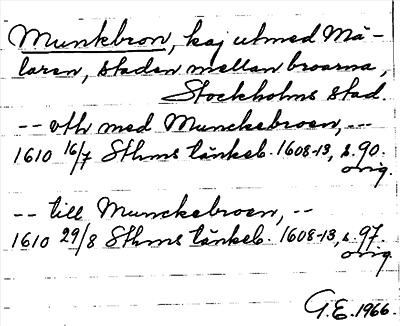 Munkbron, kaj utmed Mä-
laren, staden mellan broarna,
Stockholms stad.
-- vth med Munckebroen, --
1610 16/7 Sthms tänkeb. 1608-13, s. 90.
orig.
-- till Munckebroen, --
1610 29/8 Sthms tänkeb. 1608-13, s. 97.
orig.
G.E. 1966.